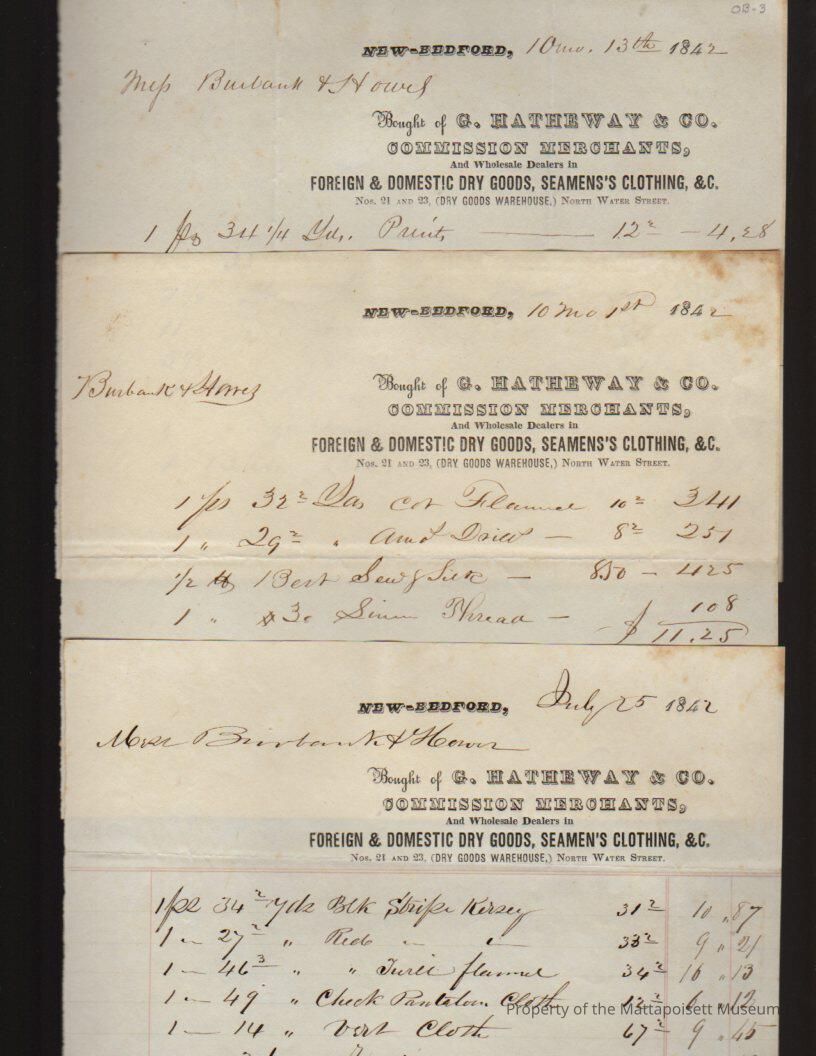 OB-3
NEW-BEDFORD, 10mo. 13th 1842
Mess Burbank & Howes
Bought of G. HATHEWAY & CO.
COMMISSION MERCHANTS,
And Wholesale Dealers in
FOREIGN & DOMESTIC DRY GOODS, SEAMENS'S CLOTHING, &C.
Nos. 21 AND 23, (DRY GOODS WAREHOUSE,) NORTH WATER STREET.
1 ps 34 1/4 Yds. Prints — 12 2 — 4,28
NEW-BEDFORD, 10 mo 1st 1842
Burbank & Howes
Bought of G. HATHEWAY & CO.
COMMISSION MERCHANTS,
And Wholesale Dealers in
FOREIGN & DOMESTIC DRY GOODS, SEAMENS'S CLOTHING, &C.
Nos. 21 AND 23, (DRY GOODS WAREHOUSE,) NORTH WATER STREET.
1 ps 32 2 Yds Cot Flannel 10 2 341
1 " 29 2 " Drill — 8 2 251
1/2 lb Best Sewg Silk — 850 — 425
1 " 30 Linen Thread — 108
$ 11.25
NEW-BEDFORD, July 25 1842
Mess Burbank & Howes
Bought of G. HATHEWAY & CO.
COMMISSION MERCHANTS,
And Wholesale Dealers in
FOREIGN & DOMESTIC DRY GOODS, SEAMEN'S CLOTHING, &C.
Nos. 21 AND 23, (DRY GOODS WAREHOUSE,) NORTH WATER STREET.
1 ps 34 2 Yds Blk Stripe Kersey 31 2 10 "87
1 — 27 2 " Red " " 33 2 9 " 21
1 — 46 3 " " Twill flannel 34 2 16 " 13
1 — 49 " Check Pantaloon Cloth 12 2 6 " 12
1 — 14 " Vest Cloth 67 2 9 " 45
Property of the Mattapoisett Museum